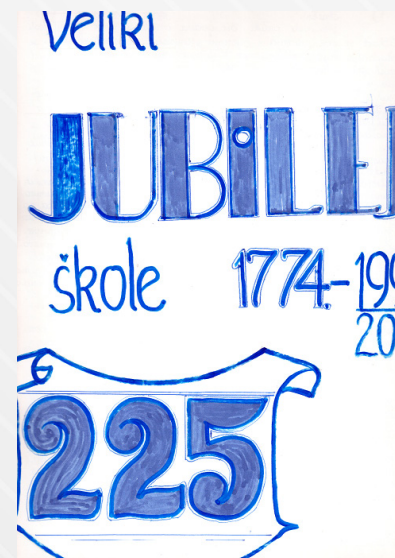 Veliki
JUBILEJ
škole 1774.-199
20
225